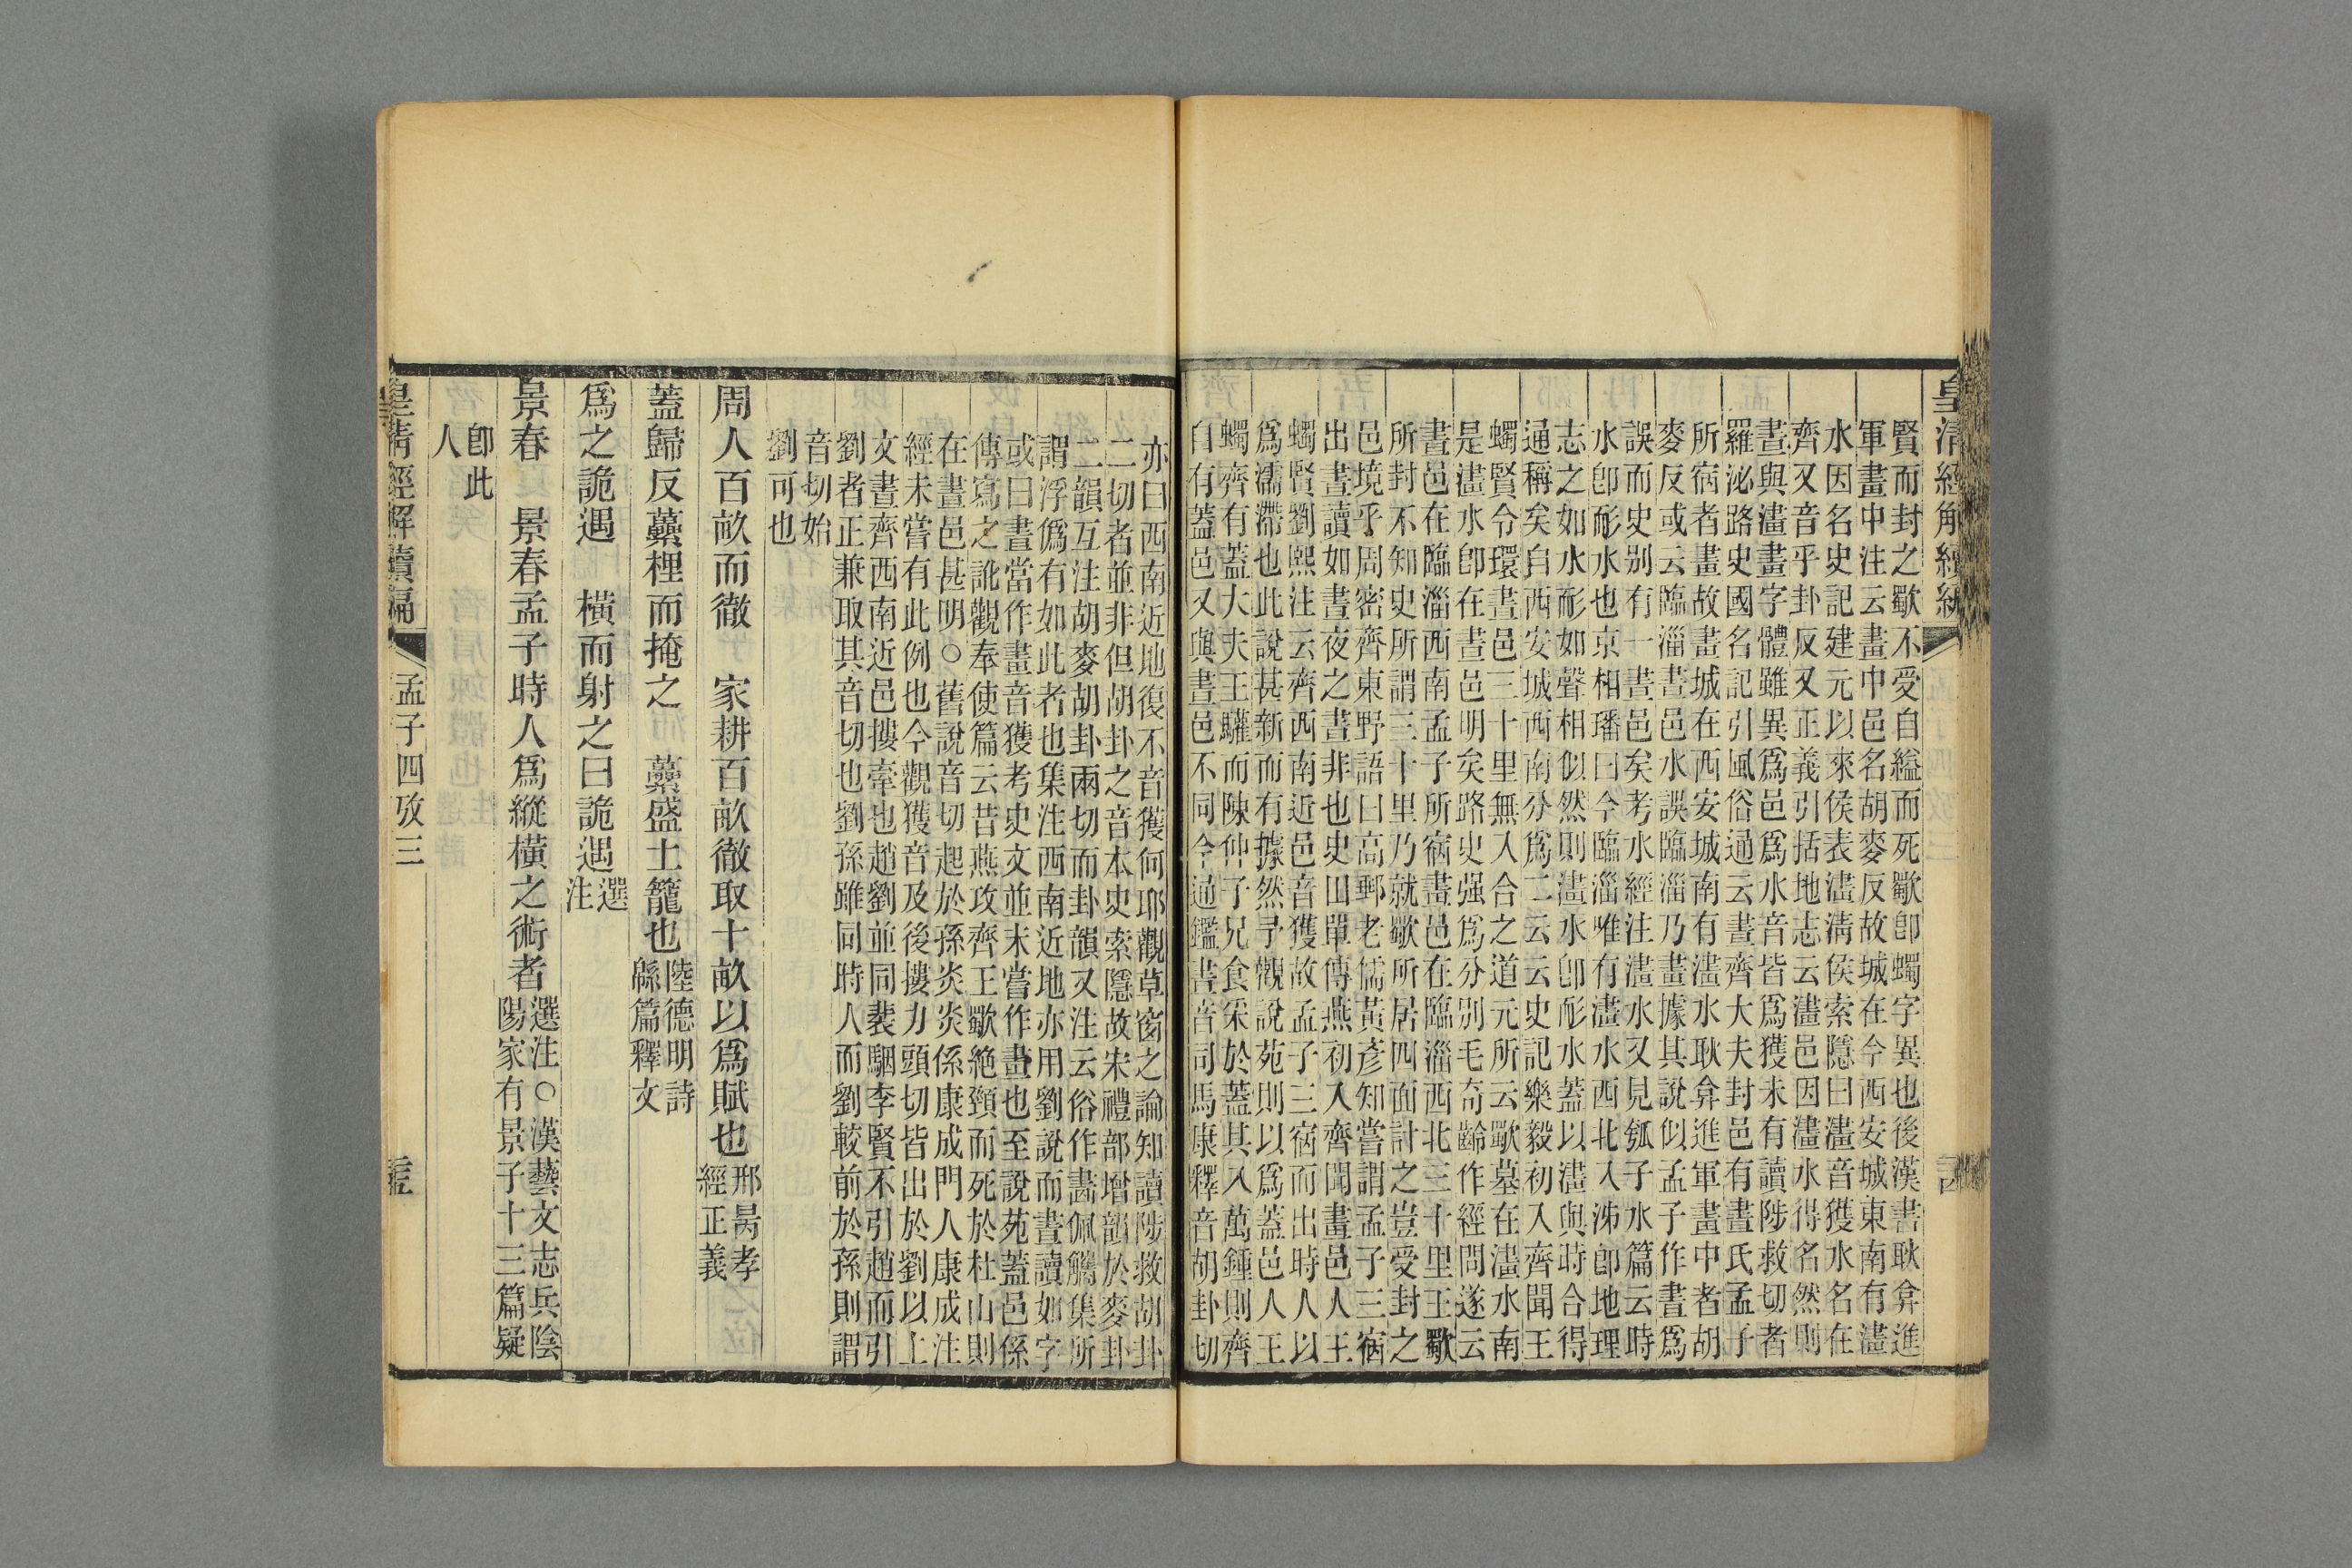 皇清經解續編
賢而封之歜不受自縊而死歜卽蠋字異也後漢書耿弇進
軍畫中注云畫中邑名胡麥反故城在今西安城東南有澅
水因名史記建元以來侯表澅淸侯索隱曰澅音獲水名在
齊又音乎卦反又正義引括地志云澅邑因澅水得名然則
晝與澅畫字體雖異爲邑爲水音皆爲獲未有讀陟救切者
羅泌路史國名記引風俗通云晝齊大夫封邑有晝氏孟子
所宿者畫故畫城在西安城南有澅水耿弇進軍畫中者胡
麥反或云臨淄晝邑水誤臨淄乃畫據其說似孟子作晝爲
誤而史别有一晝邑矣考水經注澅水又見瓠子水篇云時
水卽耏水也京相璠曰今臨淄唯有澅水西北入沛卽地理
志之如水耏如聲相似然則澅水卽耏水蓋以澅與時合得
通稱矣自西安城西南分爲二云云史記樂毅初入齊聞王
蠋賢令環晝邑三十里無入合之道元所云歜墓在澅水南
是澅水卽在晝邑明矣路史强爲分別毛奇齡作經問遂云
晝邑在臨淄西南孟子所宿畫邑在臨淄西北三十里王歜
所封不知史所謂三十里乃就歜所居四面討之豈受封之
邑境乎周密齊東野語曰高郵老儒黃彥知嘗謂孟子三宿
出晝讀如晝夜之晝非也史田單傳燕初入齊聞畫邑人王
蠋賢劉熙注云齊西南近邑音獲故孟子三宿而出時人以
爲濡滯也此說甚新而有據然予觀說苑則以爲蓋邑人王
蠋齊有蓋大夫王驩而陳仲子兄食采於蓋其入萬鍾則齊
自有蓋邑又與晝邑不同今通鑑晝音司馬康釋音胡卦切
亦曰西南近地復不音獲何耶觀草窗之論知讀陟救胡卦
二切者並非但胡卦之音本史索隱故宋禮部增韻於麥卦
二韻互注胡麥胡卦兩切而卦韻又注云俗作畵佩觿集所
謂浮僞有如此者也集注西南近地亦用劉說而晝讀如字
或曰晝當作畫音獲考史文並未嘗作畫也至說苑蓋邑係
傳寫之訛觀奉使篇云昔燕攻齊王歜絶頸而死於杜山則
在晝邑甚明○舊說音切起於孫炎炎係康成門人康成注
經未嘗有此例也今觀獲音及後摟力頭切皆出於劉以上
文晝齊西南近邑摟牽也趙劉並同裴駰李賢不引趙而引
劉者正兼取其音切也劉孫雖同時人而劉較前於孫則謂
音切始
劉可也
周人百畝而徹　家耕百畝徹取十畝以爲賦也邢昺孝經正義
蓋歸反虆梩而掩之　虆盛土籠也陸德明詩緜篇釋文
爲之詭遇　橫而射之曰詭遇選注
景春　景春孟子時人爲縱橫之術者選注○漢藝文志兵陰陽家有景子十三篇疑
卽此
人
皇淸經解續編　孟子四攷三